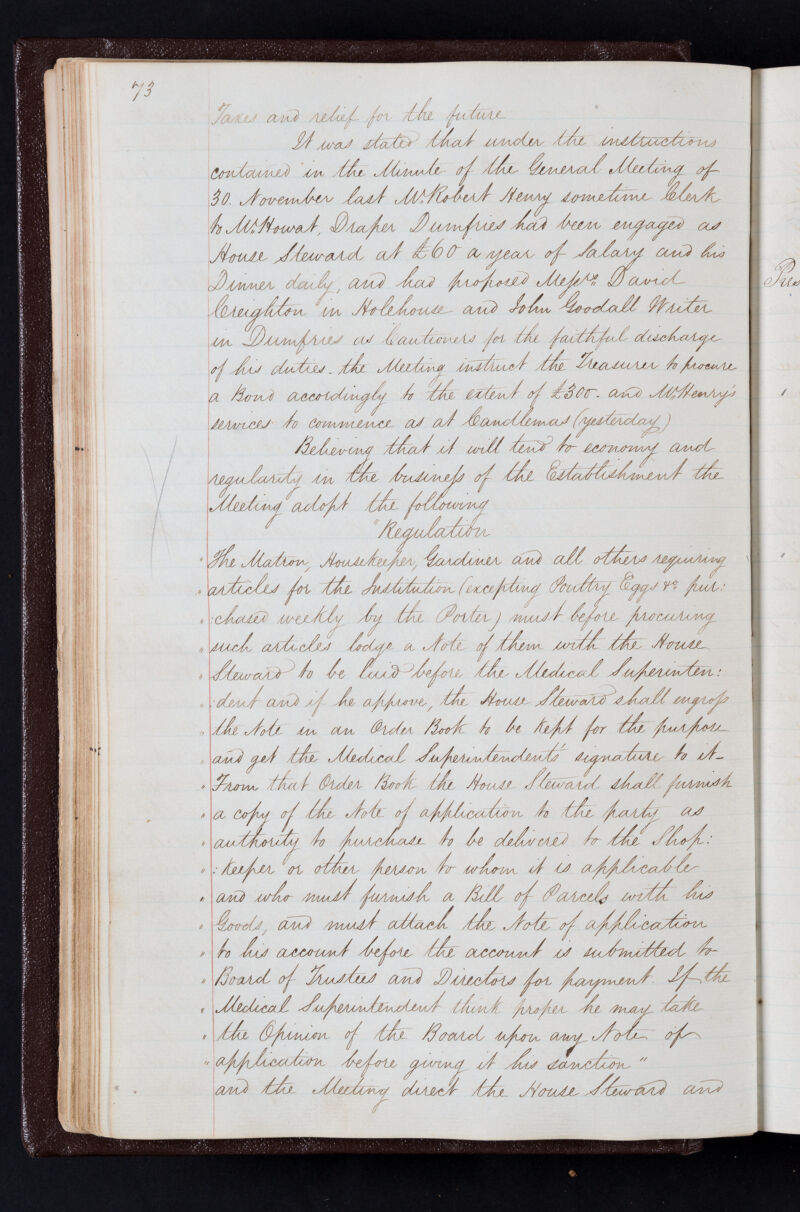 73
Taxes and relief for the future
It was stated that under the instructions
contained in the Minute of the General Meeting of
30. November last Mr. Robert Henry sometime Clerk
to Mr. Howat, Draper Dumfries had been engaged as
House Steward at £60 a year of Salary and his
Dinner daily, and had proposed Messrs. David
Creighton in Holehouse and John Goodall Writer
in Dumfries as Cautioners for the faithful discharge
of his duties. the Meeting instruct the Treasurer to procure
a Bond accordingly to the extent of £300. and Mr. Henry's
services to commence as at Candlemas (yesterday)
Believing that it will tend to economy and
regularity in the business of the Establishment the
Meeting adopt the following
"Regulation
"The Matron, Housekeeper, Gardiner and all others requiring
"articles for the Institution (excepting Poultry Eggs &c pur:
":chased weekly by the Porter) must before procuring
"such articles lodge a Note of them with the House
"Steward to be laid before the Medical Superinten:
":dent and if he approve, the House Steward shall engross
"the Note in an Order Book to be kept for the purpose
"and get the Medical Superintendent's signature to it-
"From that Order Book the House Steward shall furnish
"a copy of the Note of application to the party as
"authority to purchase to be delivered to the Shop:
":keeper or other person to whom it is applicable
"and who must furnish a Bill of Parcels with his
"Goods, and must attach the Note of application
"to his account before the account is submitted to
"Board of Trustees and Directors for payment. If the
"Medical Superintendent think proper he may take
"the Opinion of the Board upon any Note of
"application before giving it his sanction"
and the Meeting direct the House Steward and